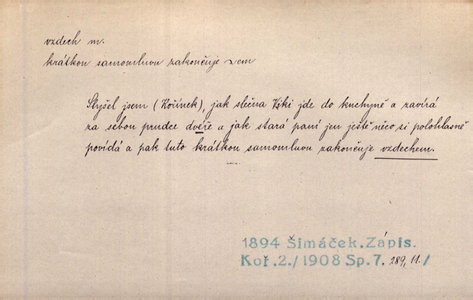 vzdech m.
krátkou samomluvu zakončuje ~em
Slyšel jsem (Kořínek), jak slečna Kiki jde do kuchyně a zavírá
za sebou prudce dveře a jak stará paní jen ještě něco si polohlasně
povídá a pak tuto krátkou samomluvu zakončuje vzdechem.
1894 Šimáček. Zápis.
Koř. 2./1908 Sp. 7. 289, 11./